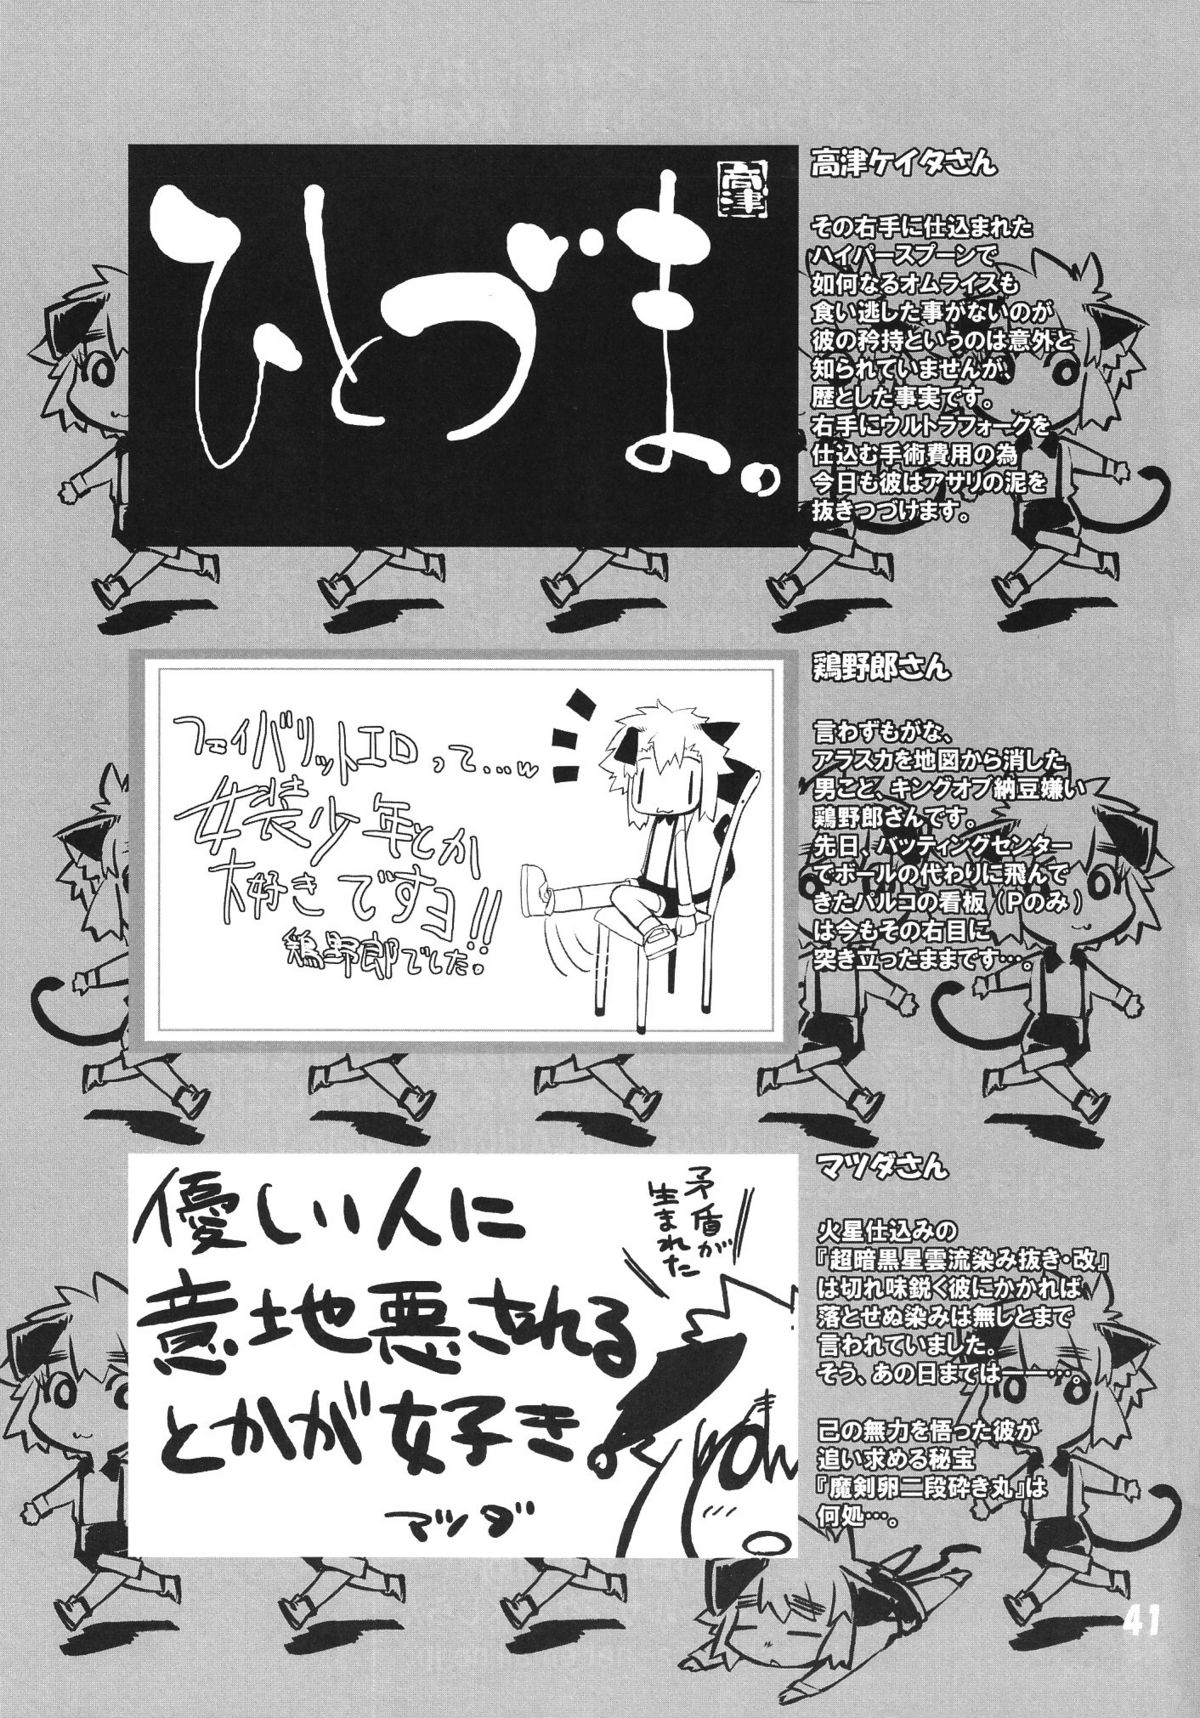 高津ケイタさん
その右手に仕込まれた
ハイパースプーンで
如何なるオムライスも
食い逃した事がないのが
彼の矜持というのは意外と
知られていませんが、
歴とした事実です。
右手にウルトラフォークを
仕込む手術費用の為
今日も彼はアサリの泥を
抜きつづけます。
ひとづま。
高津
鶏野郎さん
言わずもがな、
アラスカを地図から消した
男こと、キングオブ納豆嫌い
鶏野郎さんです。
先日、バッティングセンター
でボールの代わりに飛んで
きたパルコの看板(Pのみ)
は今もその右目に
突き立ったままです…。
フェイバリットエロって…w
女装少年とか
大好きですヨ!!
鶏野郎でした。
マツダさん
火星仕込みの
『超暗黒星雲流染み抜き・改』
は切れ味鋭く彼にかかれば
落とせぬ染みは無しとまで
言われていました。
そう、あの日までは――…。
己の無力を悟った彼が
追い求める秘宝
『魔剣卵二段砕き丸』は
何処…。
優しい人に
意地悪される
とかが好き。
マツダ
矛盾が
生まれた
41